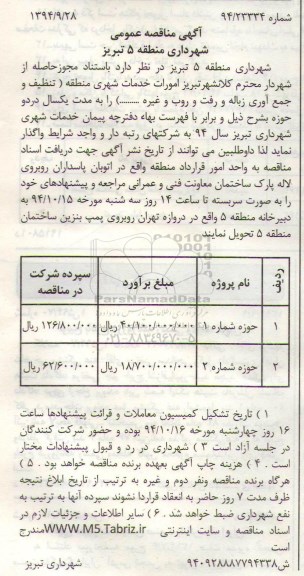 شماره ۹۴/۲۳۳۳۴
۱۳۹۴/۹/۲۸
آگهی مناقصه عمومی
شهرداری منطقه ۵ تبریز
شهرداری منطقه ۵ تبریز در نظر دارد باستناد مجوزحاصله از
شهردار محترم کلانشهرتبریز امورات خدمات شهری منطقه ( تنظیف و
جمع آوری زباله و رفت و روب و غیره .........) را به مدت یکسال دردو
حوزه بشرح ذیل و برابر با فهرست بهاء دفترچه پیمان خدمات شهری
شهرداری تبریز سال ۹۴ به شرکتهای رتبه دار و واجد شرایط واگذار
نماید لذا داوطلبین می توانند از تاریخ نشر آگهی جهت دریافت اسناد
مناقصه به واحد امور قرارداد منطقه واقع در اتوبان پاسداران روبروی
لاله پارک ساختمان معاونت فنی و عمرانی مراجعه و پیشنهادهای خود
را به صورت سربسته تا ساعت ۱۴ روز سه شنبه مورخه ۹۴/۱۰/۱۵ به
دبیرخانه منطقه ۵ واقع در دروازه تهران روبروی پمپ بنزین ساختمان
منطقه ۵ تحویل نمایند
ردیف
نام پروژه
مبلغ برآورد
سپرده شرکت در مناقصه
۱
حوزه شماره ۱
۴۰/۱۰۰/۰۰۰/۰۰۰ ریال
۱۲۶/۸۰۰/۰۰۰ ریال
۲
حوزه شماره ۲
۱۸/۷۰۰/۰۰۰/۰۰۰ ریال
۶۲/۶۰۰/۰۰۰ ریال
ParsNamadData
۰۲۱-۸۸۳۴۹۶۷۰-۵
۱ ) تاریخ تشکیل کمیسیون معاملات و قرائت پیشنهادها ساعت
۱۶ روز چهارشنبه مورخه ۹۴/۱۰/۱۶ بوده و حضور شرکت کنندگان
در جلسه آزاد است ۳ ) شهرداری در رد و قبول پیشنهادات مختار
است . ۴ ) هزینه چاپ آگهی بعهده برنده مناقصه خواهد بود . ۵ )
هرگاه برنده مناقصه ونفر دوم و غیره به ترتیب از تاریخ ابلاغ نتیجه
ظرف مدت ۷ روز حاضر به انعقاد قراردا نشوند سپرده آنها به ترتیب به
نفع شهرداری ضبط خواهد شد. ۶ ) سایر اطلاعات و جزئیات لازم در
اسناد مناقصه و سایت اینترنتی WWW.M5.Tabriz.ir مندرج
است
ش۹۴۰۹۲۸۸۸۷۷۹۴۳۳۸
شهرداری تبریز